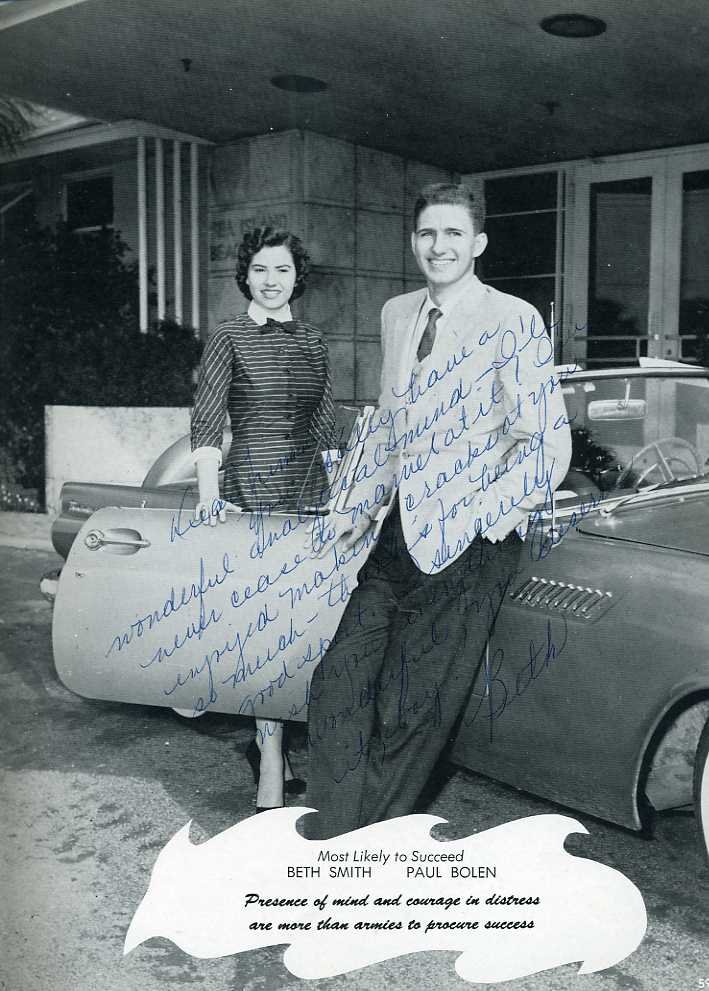 SEA ISLAND
BEA
Dear
You really have a
wonderful analytical mind - I'll
never cease to marvel at it! I've
enjoyed making cracks at you
so much - thanks for being a
good sport.
wish you everything
wonderful
Sincerely
Beth
Most Likely to Succeed
BETH SMITH PAUL BOLEN
Presence of mind and courage in distress
are more than armies to procure success